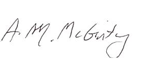 A. M. McGinty